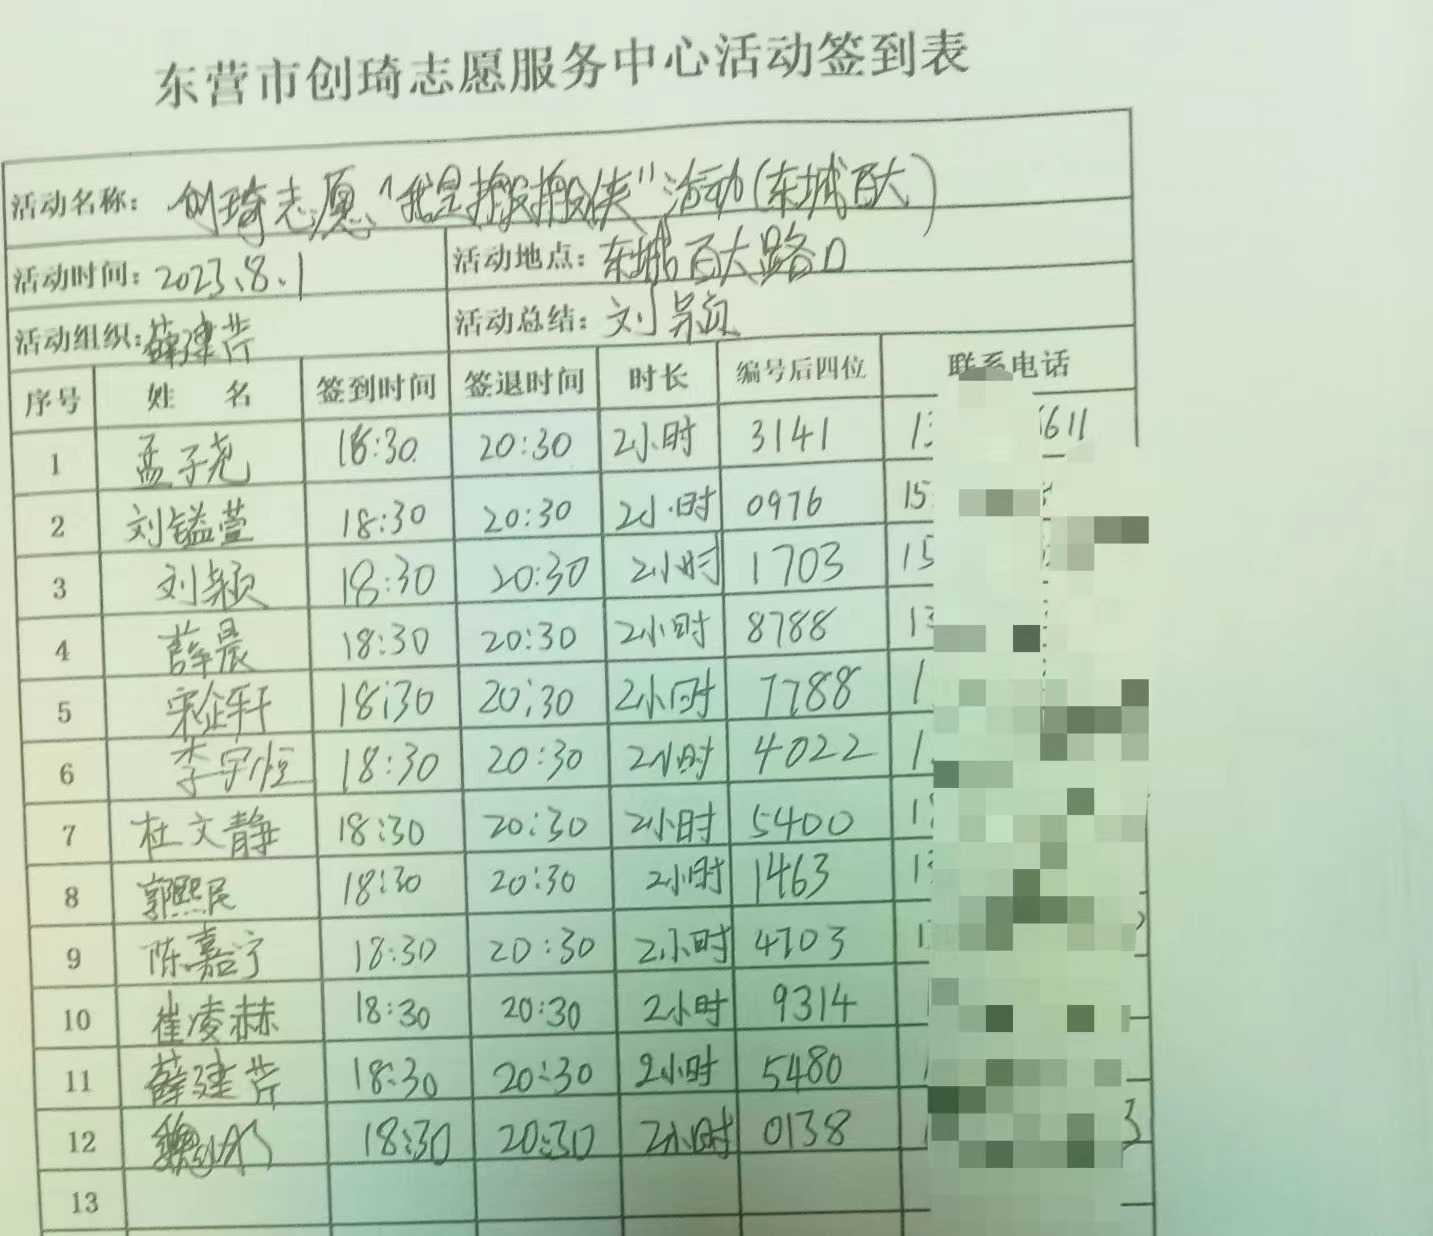 东营市创琦志愿服务中心活动签到表
活动名称: 创琦志愿"我是搬搬侠"活动(东城百大)
活动时间: 2023.8.1 活动地点: 东城百大路口
活动组织: 薛建芹 活动总结: 刘颖
序号 姓 名 签到时间 签退时间 时长 编号后四位 联系电话
1 孟子尧 18:30 20:30 2小时 3141 13 6611
2 刘镒萱 18:30 20:30 2小时 0976 15
3 刘颖 18:30 20:30 2小时 1703 15
4 薛晨 18:30 20:30 2小时 8788 13
5 宋企轩 18:30 20:30 2小时 7788 1
6 李宇恒 18:30 20:30 2小时 4022 1
7 杜文静 18:30 20:30 2小时 5400 1
8 郭熙民 18:30 20:30 2小时 1463 13
9 陈嘉宁 18:30 20:30 2小时 4703 1
10 崔凌赫 18:30 20:30 2小时 9314
11 薛建芹 18:30 20:30 2小时 5480
12 18:30 20:30 2小时 0138 3
13